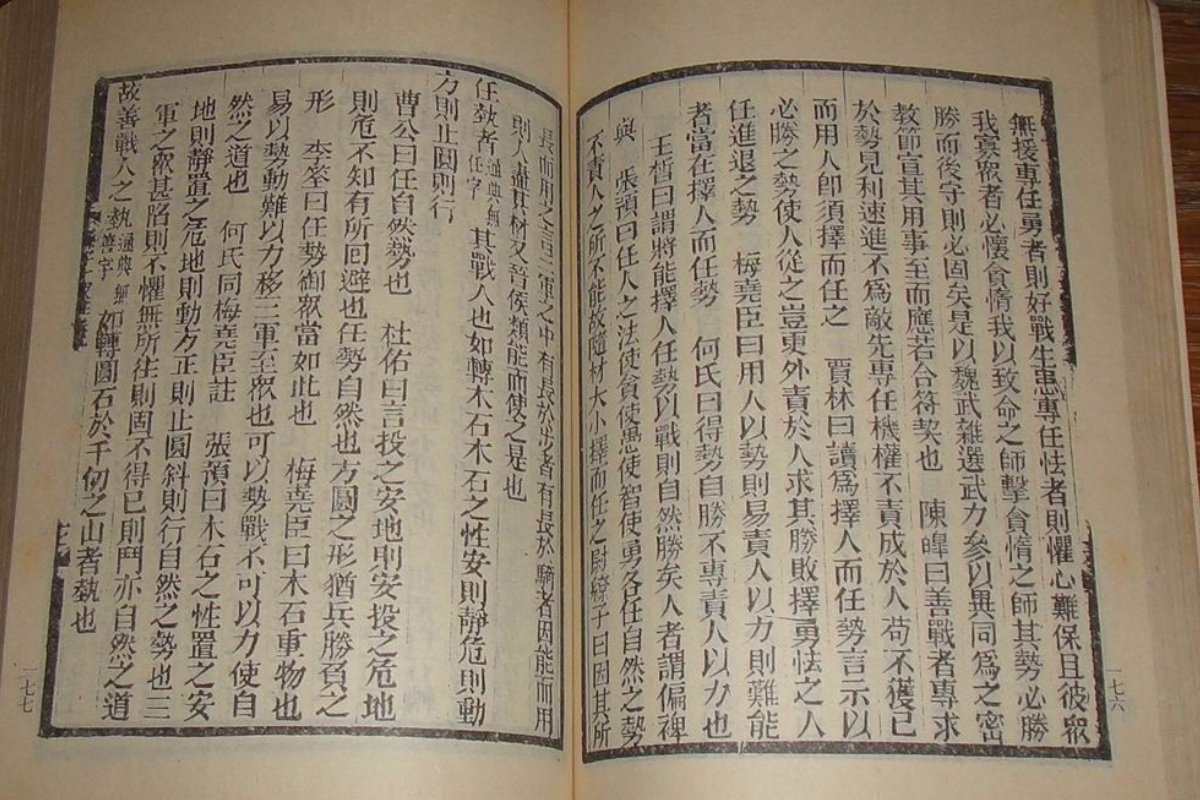 無援專任勇者則好戰生患專任怯者則懼心難保且彼衆
我寡衆者必懷貪惰我以致命之師擊貪惰之師其勢必勝
勝而後守則必固矣是以魏武雜選武力參以異同爲之密
教節宣其用事至而應若合符契也　陳皥曰善戰者專求
於勢見利速進不爲敵先專任機權不責成於人苟不獲已
而用人卽須擇而任之　賈林曰讀爲擇人而任勢言示以
必勝之勢使人從之豈更外責於人求其勝敗擇勇怯之人
任進退之勢　梅堯臣曰用人以勢則易責人以力則難能
者當在擇人而任勢　何氏曰得勢自勝不專責人以力也
王晳曰謂將能擇人任勢以戰則自然勝矣人者謂偏裨
與　張預曰任人之法使貪使愚使智使勇各任自然之勢
不責人之所不能故隨材大小擇而任之尉繚子曰因其所
一七六
長而用之言三軍之中有長於步者有長於騎者因能而用
則人盡其材又晉侯類能而使之是也
任埶者通典無任字其戰人也如轉木石木石之性安則靜危則動
方則止圓則行
曹公曰任自然勢也　杜佑曰言投之安地則安投之危地
則危不知有所回避也任勢自然也方圓之形猶兵勝負之
形　李筌曰任勢御衆當如此也　梅堯臣曰木石重物也
易以勢動難以力移三軍至衆也可以勢戰不可以力使自
然之道也　何氏同梅堯臣註　張預曰木石之性置之安
地則靜置之危地則動方正則止圓斜則行自然之勢也三
軍之衆甚陷則不懼無所往則固不得已則鬥亦自然之道
故善戰人之埶通典無善字如轉圓石於千仞之山者埶也
一七七